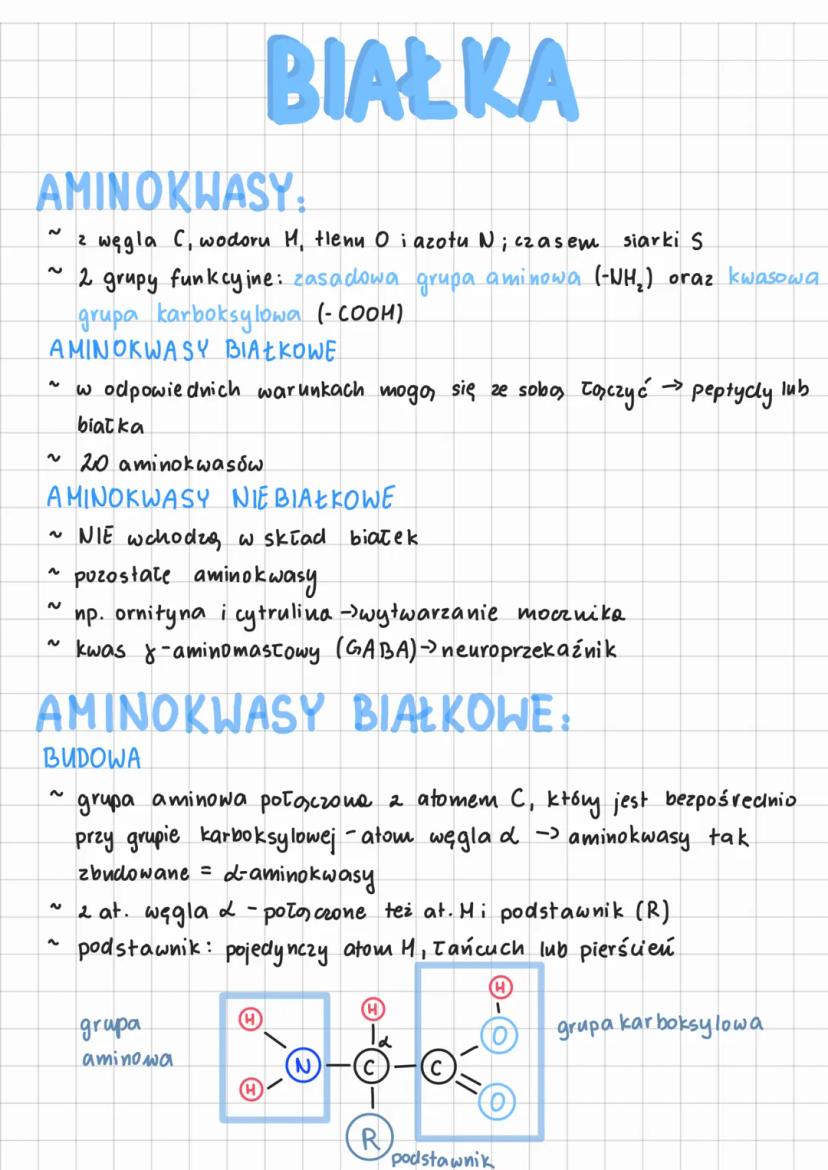 BIAŁKA
AMINOKWASY:
~ z węgla C, wodoru H, tlenu O i azotu N; czasem siarki S
~ 2 grupy funkcyjne: zasadowa grupa aminowa (-NH₂) oraz kwasowa
grupa karboksylowa (-COOH)
AMINOKWASY BIAŁKOWE
~ w odpowiednich warunkach mogą się ze sobą łączyć → peptydy lub
białka
~ 20 aminokwasów
AMINOKWASY NIEBIAŁKOWE
~ NIE wchodzą w skład białek
~ pozostałe aminokwasy
~ np. ornityna i cytrulina → wytwarzanie mocznika
~ kwas γ-aminomasłowy (GABA) → neuroprzekaźnik
AMINOKWASY BIAŁKOWE:
BUDOWA
~ grupa aminowa połączona z atomem C, który jest bezpośrednio
przy grupie karboksylowej - atom węgla α → aminokwasy tak
zbudowane = α-aminokwasy
~ z at. węgla α - połączone też at. H i podstawnik (R)
~ podstawnik: pojedynczy atom H, łańcuch lub pierścień
grupa
aminowa
H
H
N
H
α
C
R
podstawnik
C
H
O
O
grupa karboksylowa